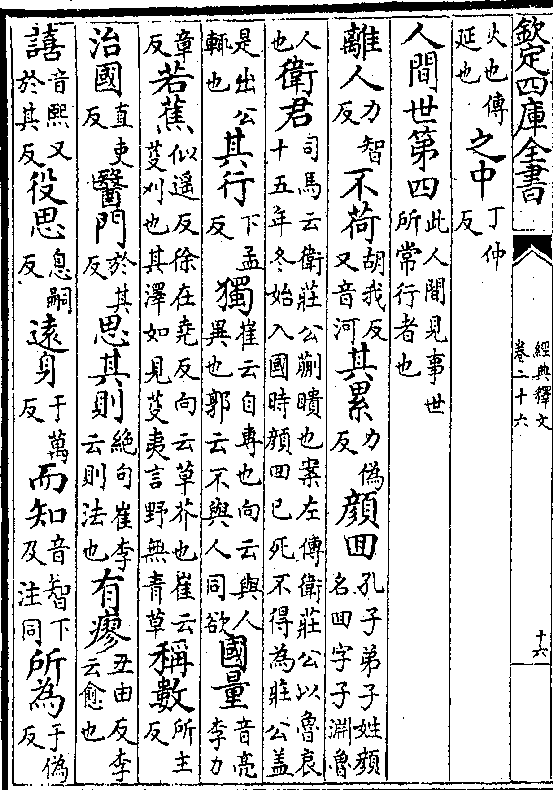 欽定四庫全書
經典釋文
卷二十六
十六
火也傳延也之中丁仲反
人間世第四此人間見事世所常行者也
離人力智反不荷胡我反又音河其累力偽反顏回孔子弟子姓顏名回字子淵魯
人也衛君司馬云衛莊公蒯瞶也案左傳衛莊公以魯哀十五年冬始入國時顏回已死不得為莊公盖
是出公輒也其行下孟反獨崔云自專也向云與人異也郭云不與人同欲國量音亮李力
章反若蕉似遥反徐在堯反向云草芥也崔云芟刈也其澤如見芟夷言野無青草稱數所主反
治國直吏反醫門於其反思其則絶句崔李云則法也有瘳丑由反李云愈也
譆音熙又於其反役思息嗣反遠身于萬反而知音智下及注同所為于偽反